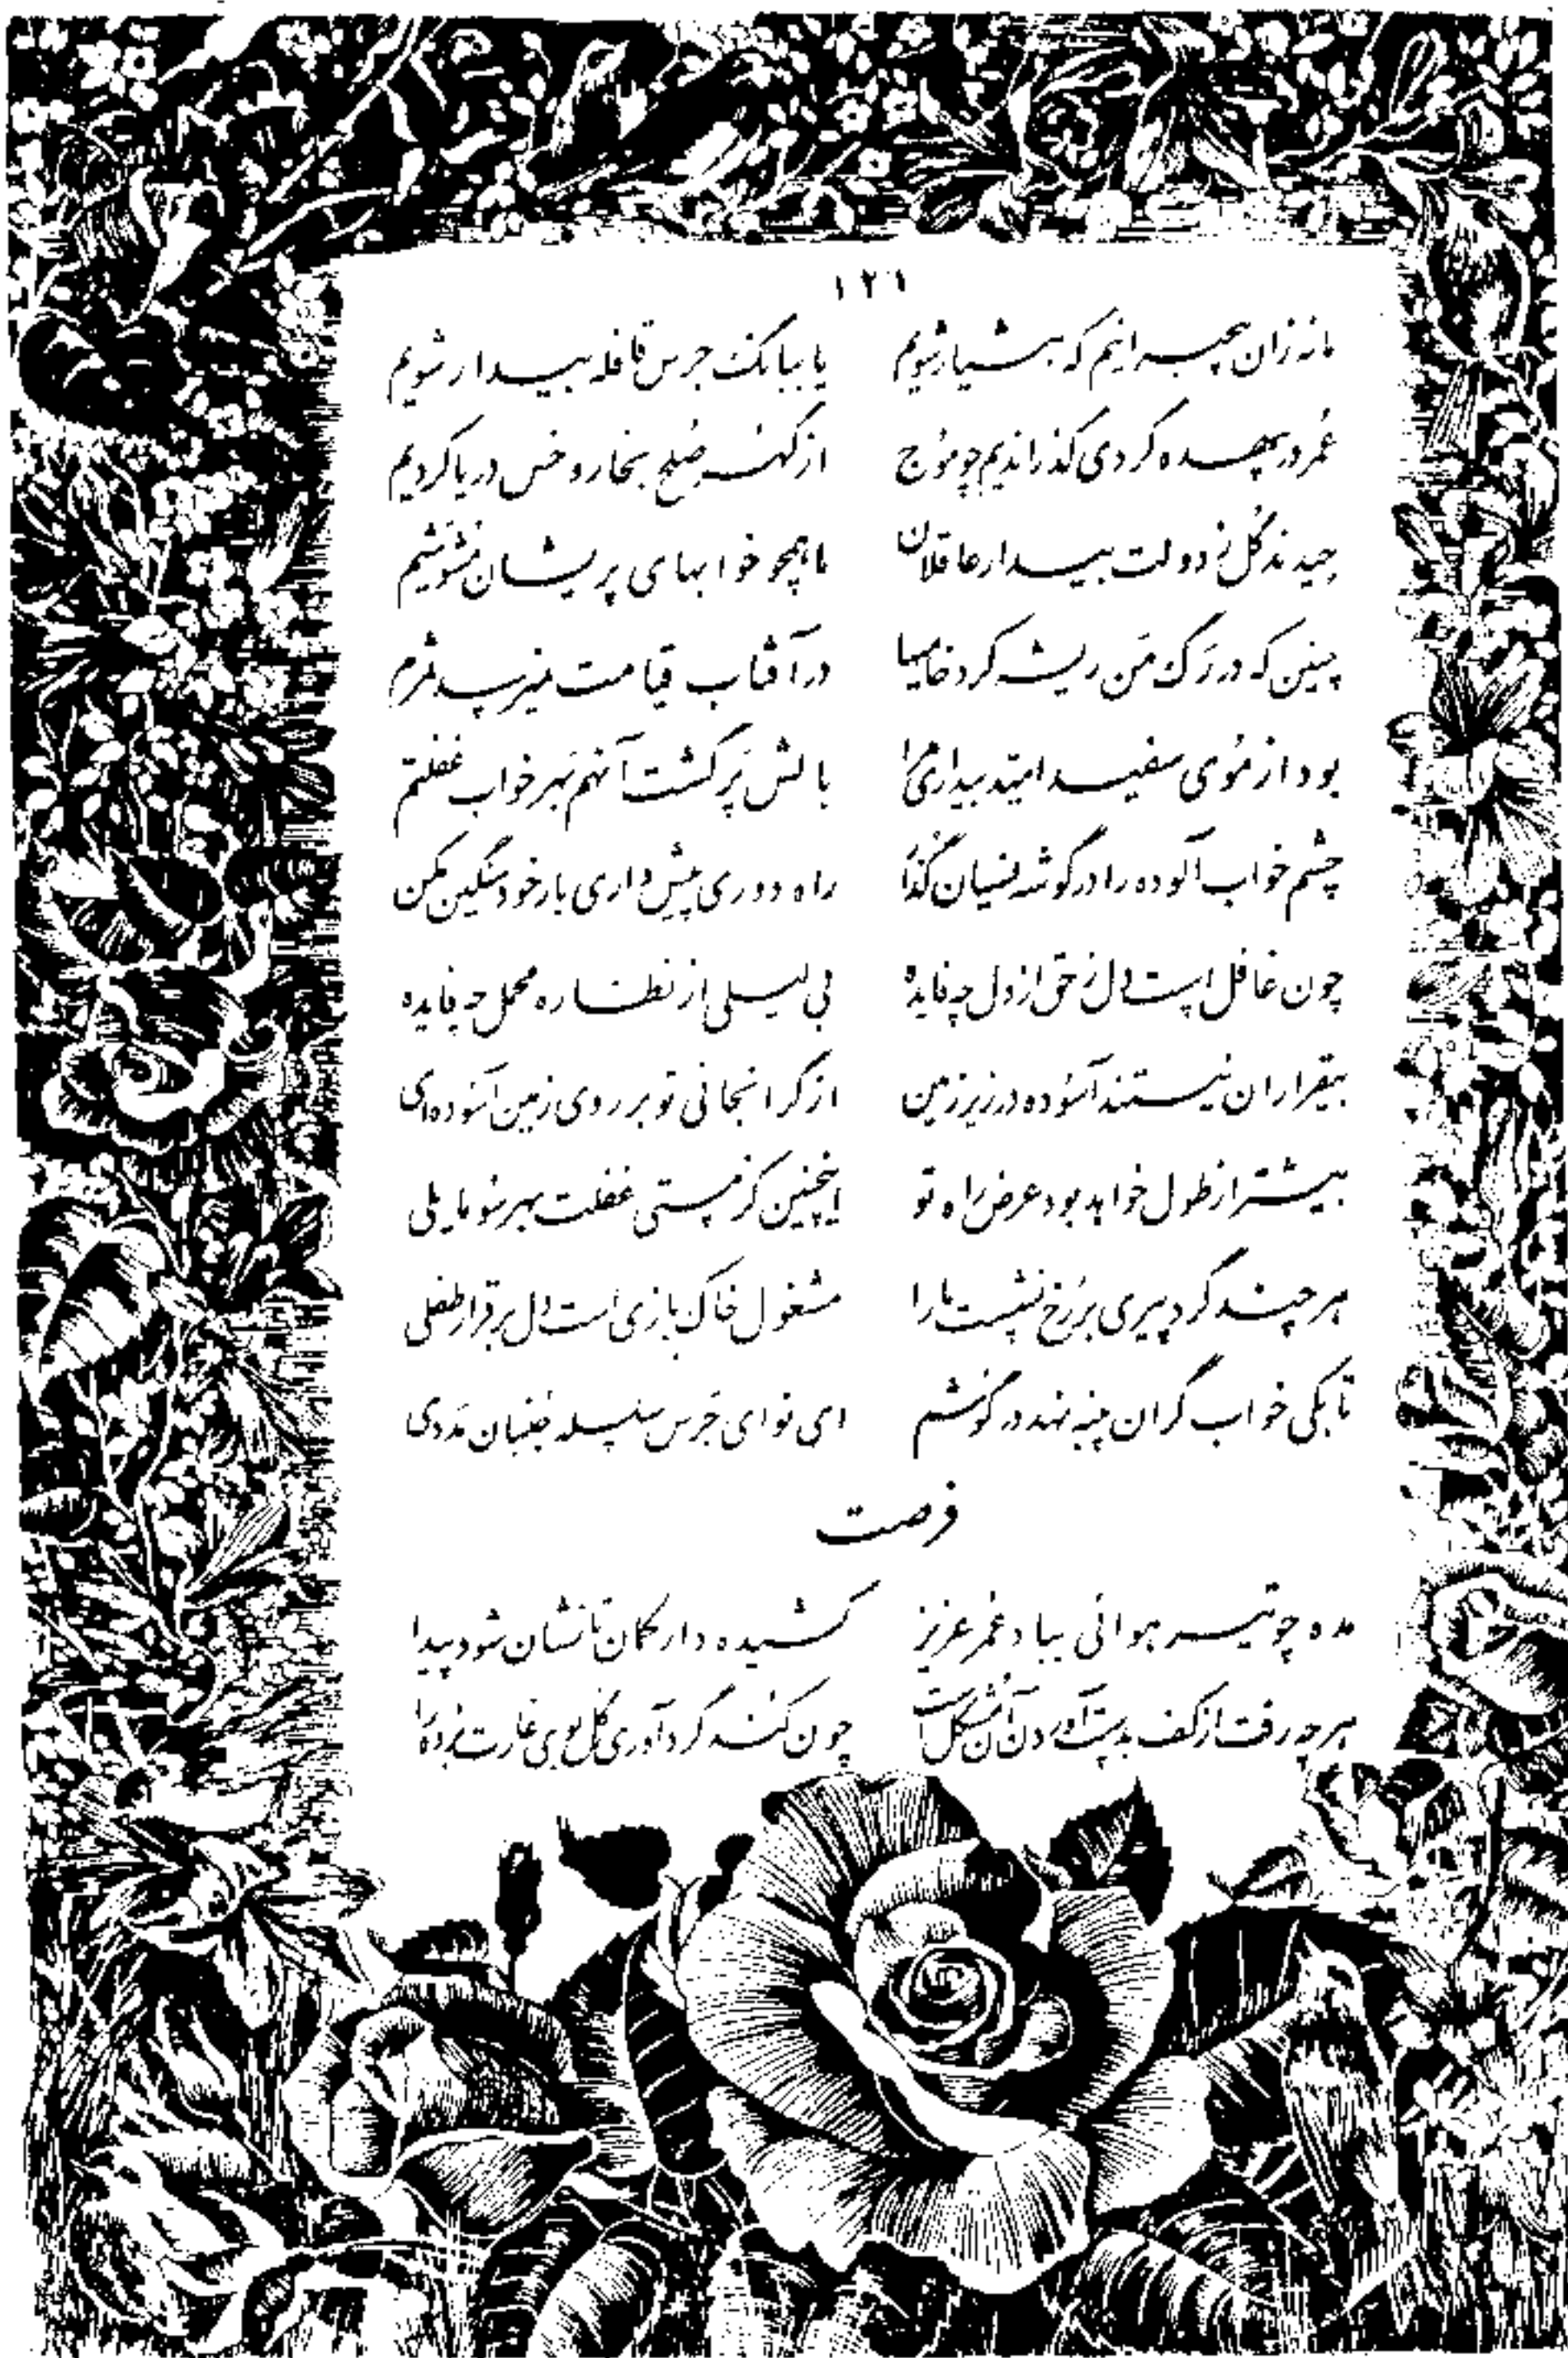 ۱۲۱
ما نه زان بیخبرانیم که هشیار شویم یا ببانگ جرس قافله بیدار شویم
عُمر در بیهده گردی گذراندیم چو مَوج از گهر صُلح بخار و خس دریا کردیم
چیدند گُل ز دولت بیدار عاقلان ما همچو خوابهای پریشان مُشَوّشیم
چنین که در رَگ مَن ریشه کرد خامیها در آفتاب قیامت نمیرسد ثمرم
بود از مُوی سفید امّید بیداری مرا بالش پَر گشت آنهم بَهر خواب غفلتم
چشم خواب آلوده را در گوشه نسیان گُذار راه دوری پیش داری بار خود سنگین مکن
چون غافل است دل ز حق از دل چه فایده بی لیلی از نظاره محمل چه فایده
بیقراران نیستند آسُوده در زیر زمین از گرانجانی تو بر روی زمین آسُوده‌ای
بیشتر از طول خواهد بود عرض راه تو اینچنین کز مستی غفلت بهر سُو مایلی
هر چند گرد پیری بر رُخ نشست ما را مشغول خاک بازی است دل برقرار طفلی
تا بکی خواب گران پنبه نهد در گوشم ای نوای جَرس سلسله جُنبان مَدَدی
فرصت
مده چو تیر هوائی بباد عُمر عزیز کشیده دار کمان تا نشان شود پیدا
هر چه رفت از کف بدست آوردن آن مُشکل است چون کند گردآوری گُل بوی غارت بُرده را